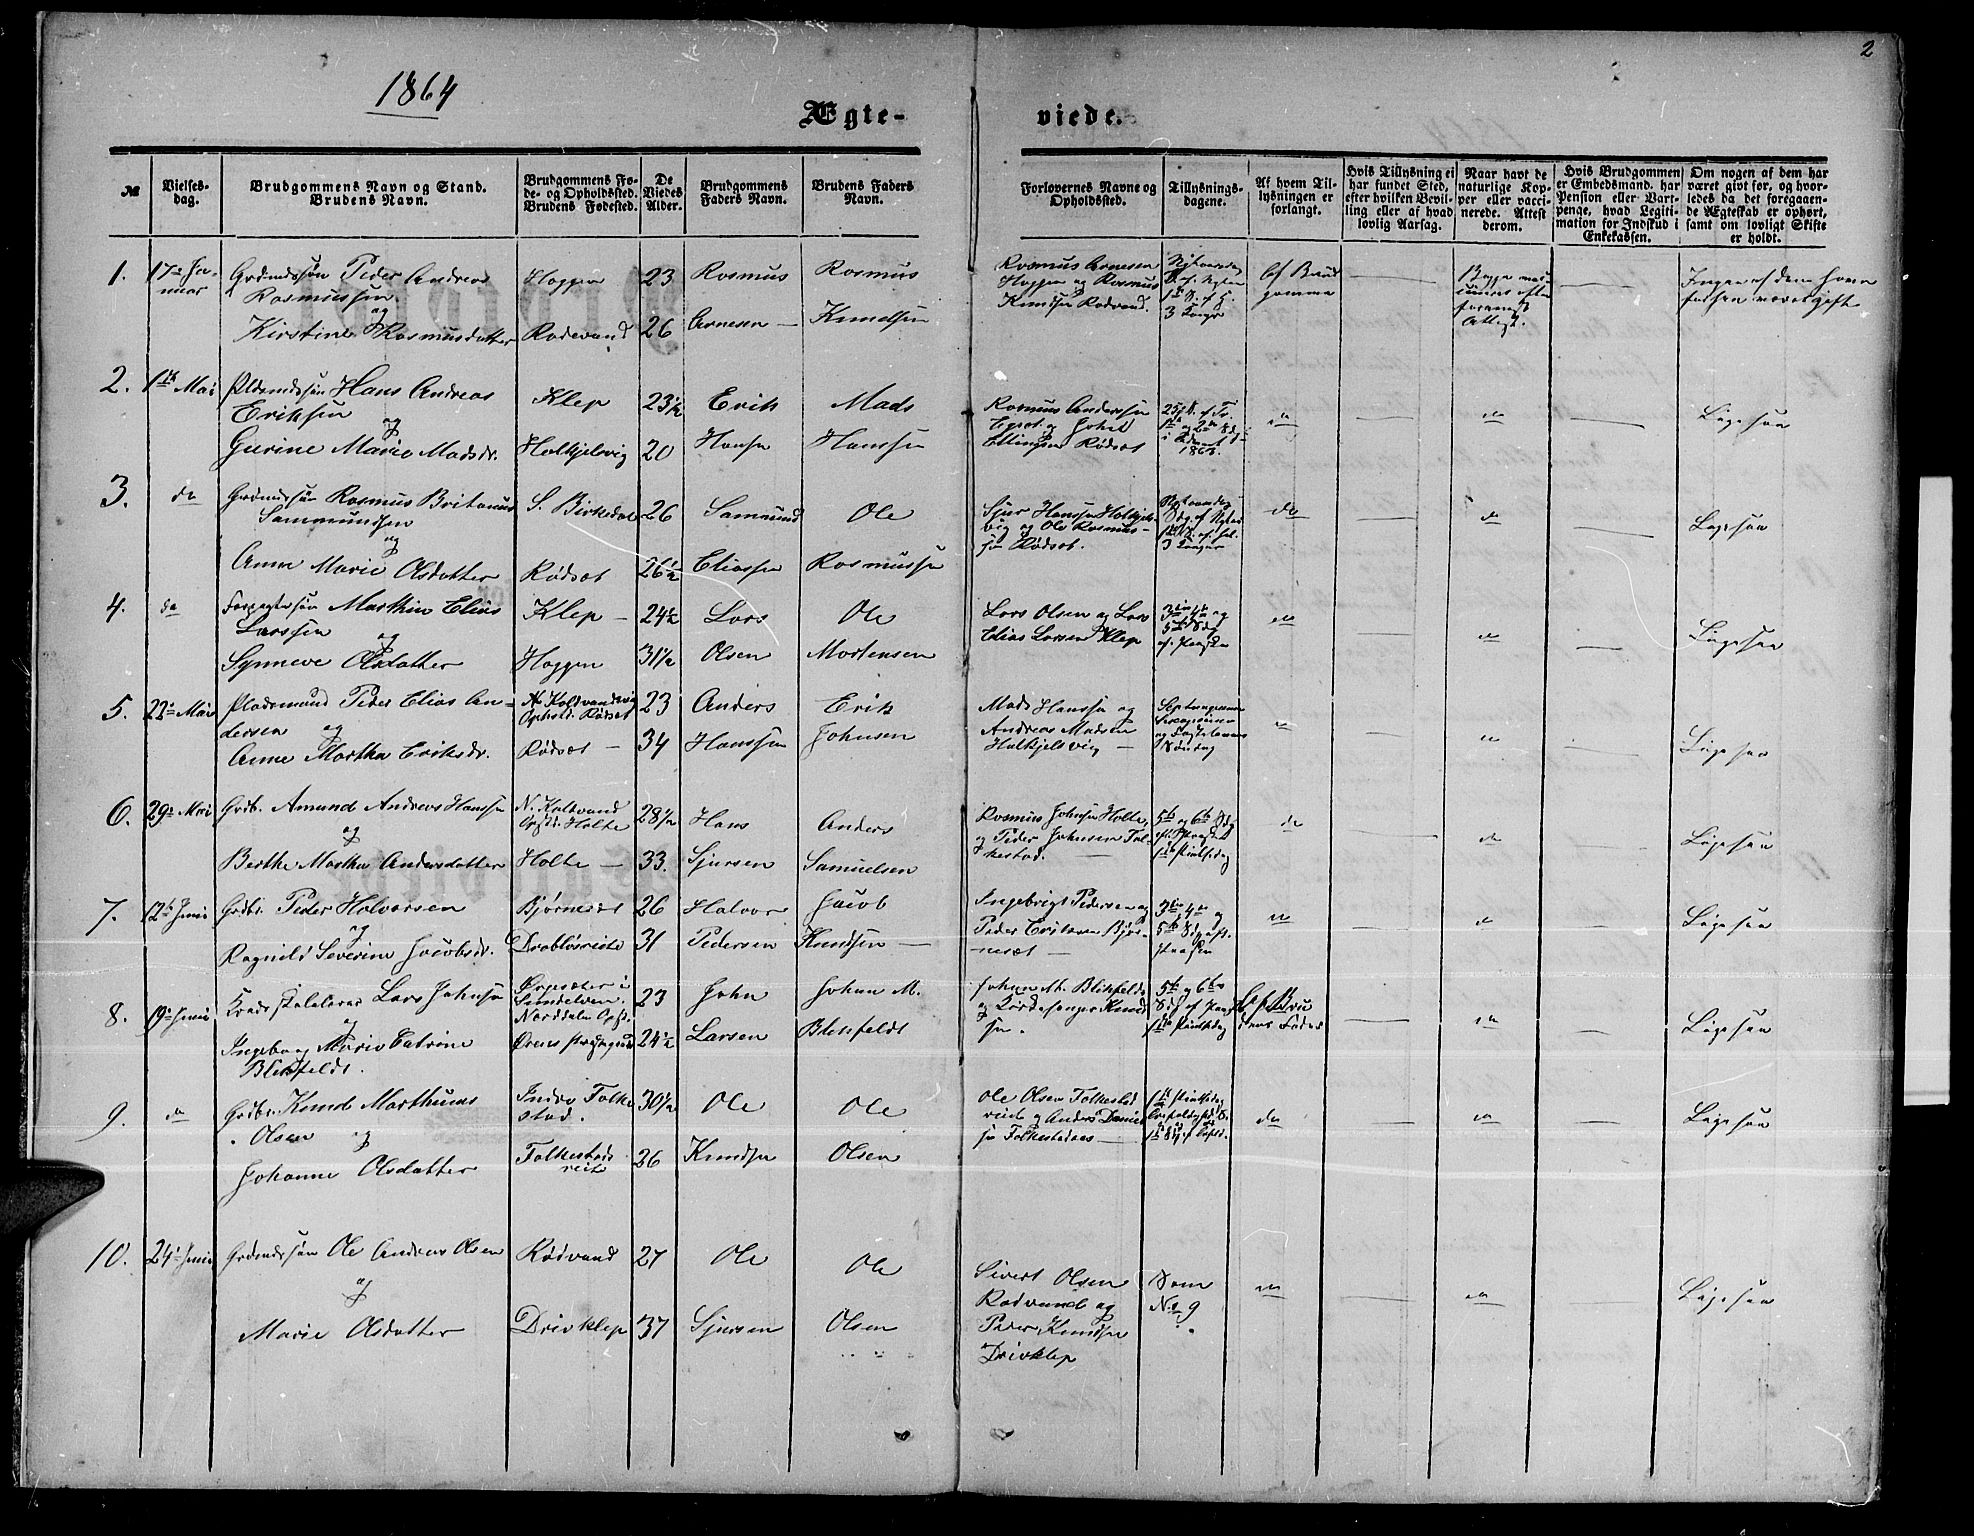 2
1864
Ægte-
viede.
№
Vielses-
dag.
Brudgommens Navn og Stand.
Brudens Navn.
Brudgommens Fø-
de- og Opholdssted.
Brudens Fødested.
De
Viedes
Alder.
Brudgommens
Faders Navn.
Brudens Faders
Navn.
Forlovernes Navne og
Opholdssted.
Tillysnings-
dagene.
Af hvem Til-
lysningen er
forlangt.
Hvis Tillysning ei
har fundet Sted,
efter hvilken Bevil-
ling eller af hvad
lovlig Aarsag.
Naar havt de
naturlige Kop-
per eller vacci-
nerede. Attest
derom.
Hvis Brudgommen
er Embedsmand, har
Pension eller Vart-
penge, hvad Legiti-
mation for Indskud i
Enkekassen.
Om nogen af dem har
været gift før, og hvor-
ledes da det foregaaen-
de Ægteskab er ophørt,
samt om lovligt Skifte
er holdt.
1.
17de Ja-
nuar
Grdmdssøn Peder Andreas
Rasmussen
og
Kirstine Rasmusdatter
Haggen
Rødevand
23
26
Rasmus
Arnesen
Rasmus
Knudsen
Rasmus Arnesen
Haggen og Rasmus
Knudsen Rødvand.
3 Konger
Af Brud
gommen
Attest.
Ingen af dem have
forhen været gift
2.
1ste Mai
Pladsmdssøn Hans Andreas
Eriksen
og
Gurine Marie Madsdr.
Klep
Halkjelsvig
23½
20
Erik
Hansen
Mads
Hanssen
Rasmus Anderssen
Egset og Johan
Ellingsen Rødset
i Advent
1863.
do
do
Ligesaa
3.
do
Grdmdssøn Rasmus Britanus
Sammundsen
og
Anne Marie Olsdatter
S. Birkedal
Rødset
26
26½
Samund
Eliassen
Ole
Rasmussen
Sjur Hanssen Halkjels-
vig og Ole Rasmus-
sen Rødset.
3 Konger
do
do
Ligesaa
4.
do
Marthin Elias
Larssen
og
Synneve Olsdatter
Klep
Haggen
24½
31½
Lars
Olsen
Ole
Mortensen
Lars Olsen og Lars
Elias Larsen Klep
3die 4de og
5te Sdg
ef. Paaske
do
do
Ligesaa
5.
22de Mai
Pladsmand Peder Elias An-
dersen
og
Anne Martha Eriksdr.
N. Kaldvandsvig
Ophold. Rødset
Rødset
23
34
Anders
Hanssen
Erik
Johnsen
Mads Hanssen og
Andreas Madsen
Halkjelsvig
Septuagesima
Sexagesima
og Fastelavns
Søndag
do
do
Ligesaa
6.
29de Mai
Grdbr. Amund Andreas Hanssen
og
Berthe Martha Andersdatter
N. Kaldvand
Opst. Holte
Holte
28½
33.
Hans
Sjursen
Anders
Samuelsen
Rasmus Johnsen Holte,
og Peder Johnsen Fol-
kestad.
5te og 6te Sdg
ef. Paaske
1ste Pintsedag
do
do
Ligesaa
7.
12te Juni
Grdbr. Peder Halvorsen
og
Ragnild Severine Jacobsdr.
Bjørneset
Drabløsreite
26
31
Halvor
Pedersen
Jacob
Knudsen
Ingebrigt Pedersen og
Peder Eriksen Bjør-
neset
3die, 4de og
5te Sdg eft.
Paasken
do
do
Ligesaa
8.
19de Juni
Lars Johnsen
og
Ingeborg Marie Catrine
Blikfeldt.
23
24½
John
Larsen
Johan M.
Blikfeldt
Johan M. Blikfeldt
og Kirkesanger Knud
sen.
5te og 6te
Sdg ef Paaske
1ste Pintsedag
Af Bru
dens Fader
do
Ligesaa
9.
do
Grdbr. Knud Marthinus
Olsen og
Johanne Olsdatter
Indre Folke
stad.
Folkestads
reite
30½
26
Ole
Knudsen
Ole
Olsen
Ole Olsen Folkestad
reite og Anders Daniel
sen Folkestadaas
1ste Pintsedag
do
do
Ligesaa
10.
24de Juni
Grdmdssøn Ole Andreas Olsen
og
Marie Olsdatter
Rødvand
Drivklep
27
37
Ole
Sjursen
Ole
Olsen
Sivert Olsen
Rødvand og
Peder Knudsen
Drivklep
Som
No 9
do
do
Ligesaa